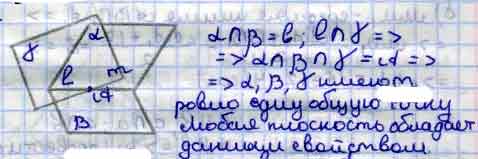 γ α
b m
A
β
α∩β=b; b∩γ=>
=> α∩β∩γ=A =>
=> α, β, γ имеют
ровно одну общую точку
Любая плоскость обладает
данным свойством.